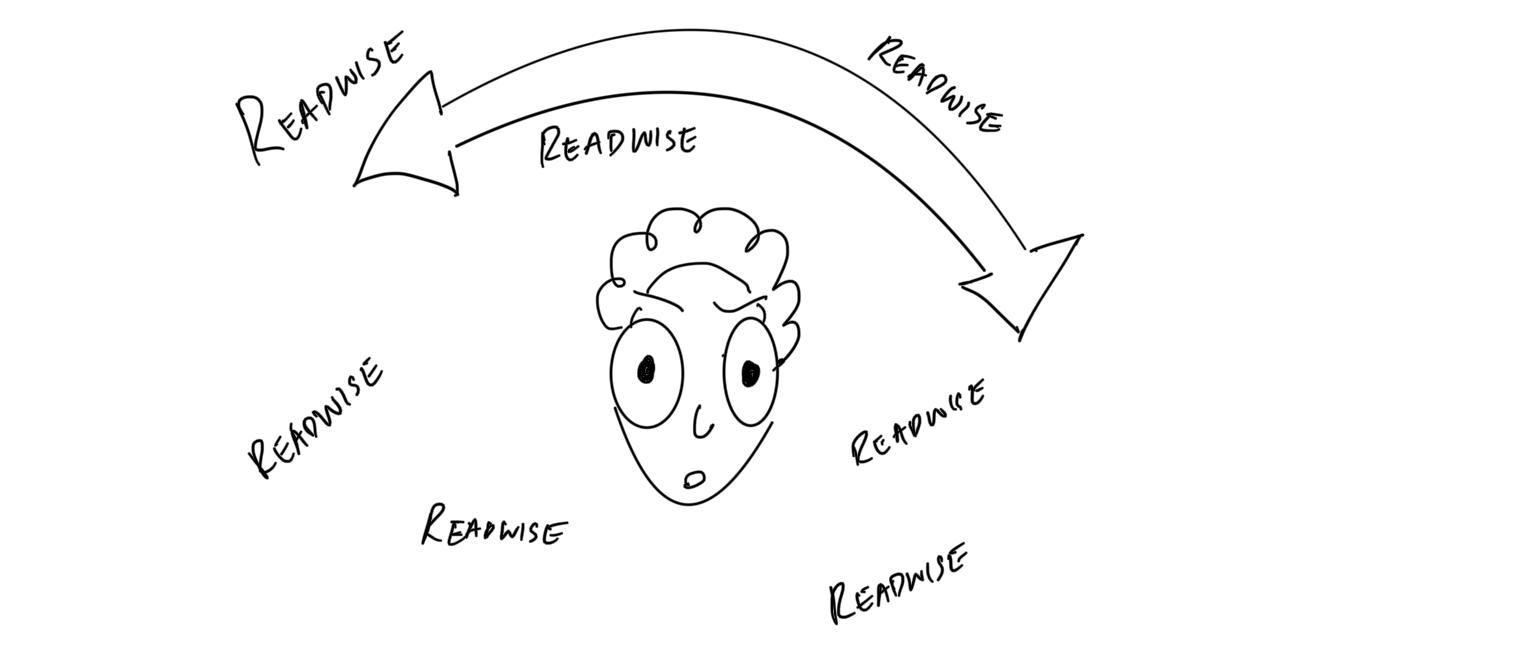 READWISE
READWISE
READWISE
READWISE
READWISE
READWISE
READWISE